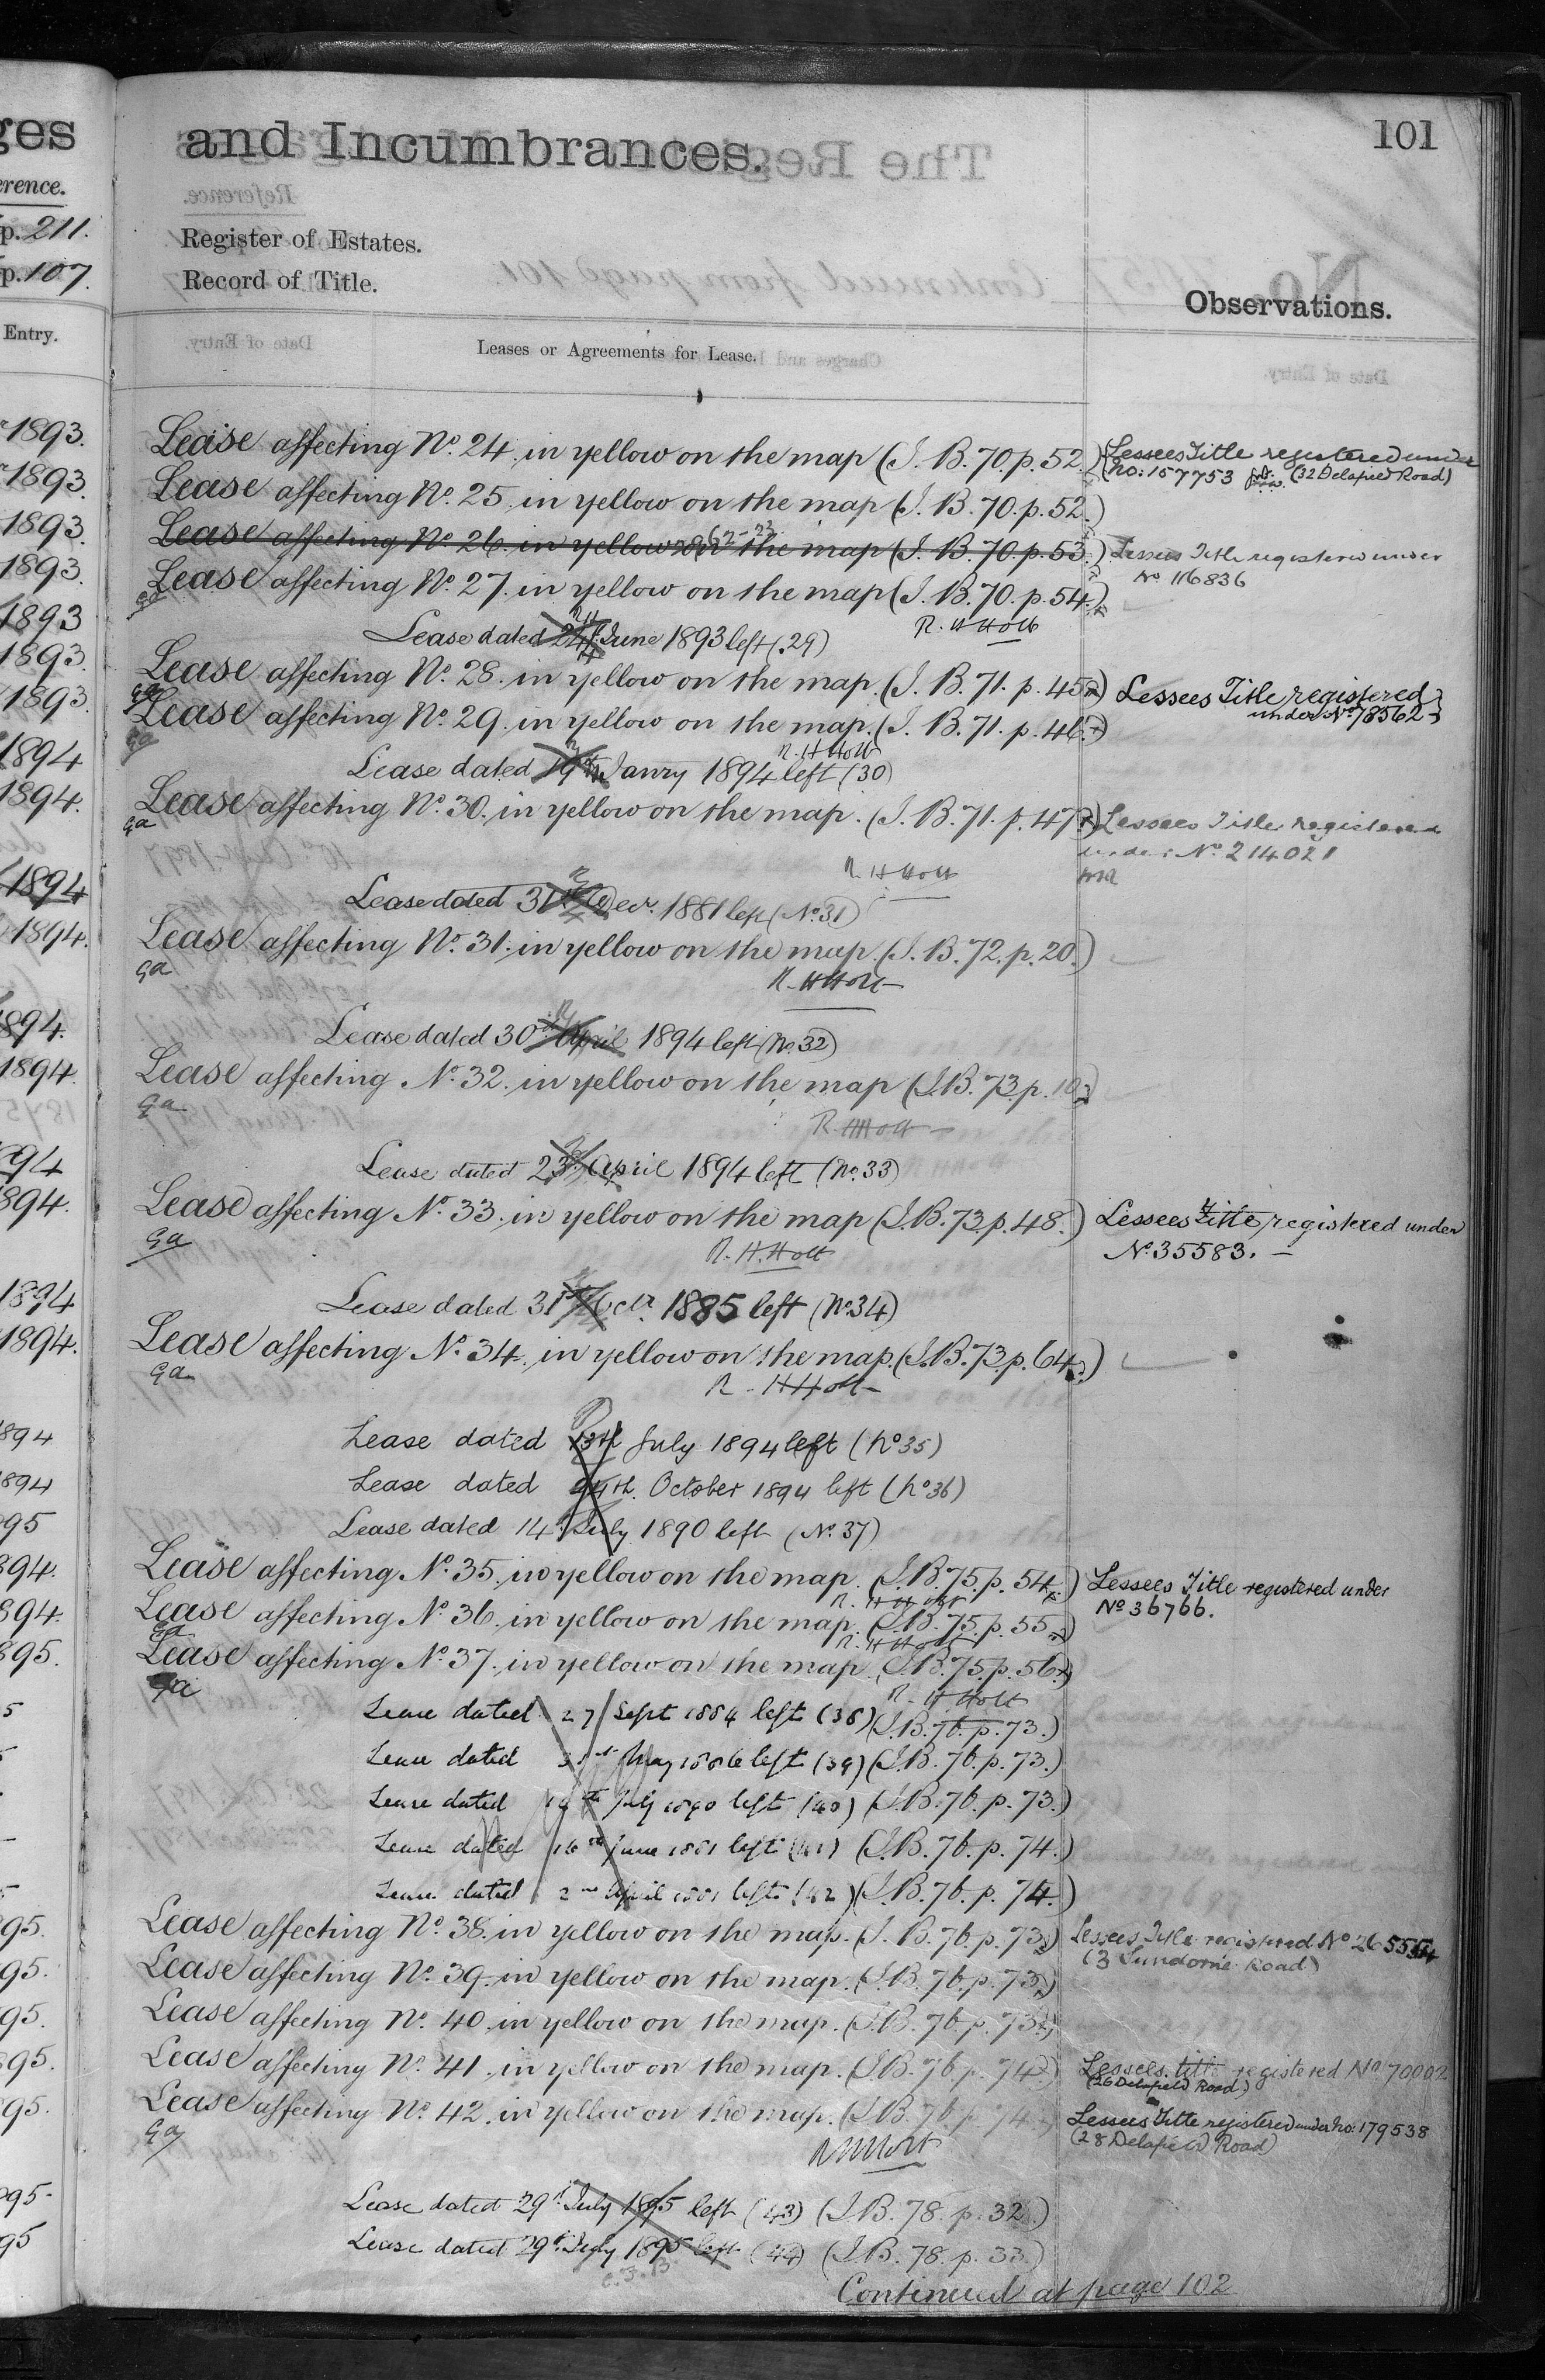 ges
and Incumbrances.
101
erence.
p. 211.
p. 107.
Register of Estates.
Record of Title.
Observations.
Entry.
Leases or Agreements for Lease.
1893.
Lease affecting No. 24. in yellow on the map (I. B. 70. p. 52.)
(Lessees Title registered under
No: 157753 (32 Delafield Road)
1893.
Lease affecting No. 25. in yellow on the map (I. B. 70. p. 52.)
1893.
Lease affecting No. 26. in yellow on the map (I. B. 70. p. 53.)
Lessees Title registered under
No 116836
1893.
Lease affecting No. 27. in yellow on the map (I. B. 70. p. 54.)
Ga
R. H Holt
1893
Lease dated 24th June 1893 left (29)
1893.
Lease affecting No. 28. in yellow on the map. (I. B. 71. p. 45.)
Lessees Title registered
under No 78562
Ga
1893.
Lease affecting No. 29. in yellow on the map. (I. B. 71. p. 46.)
Ga
R. H Holt
1894
Lease dated 19th Janry 1894 left (30)
1894.
Lease affecting No. 30. in yellow on the map. (I. B. 71. p. 47.)
Lessees Title registered
under No 214021
Ga
R. H Holt
1894
Lease dated 31st Decr. 1881 left (No. 31)
1894.
Lease affecting No. 31. in yellow on the map. (I. B. 72. p. 20.)
Ga
R. H Holt
1894.
Lease dated 30th April 1894 left (No. 32)
1894.
Lease affecting No. 32. in yellow on the map (I. B. 73. p. 10.)
Ga
R. H Holt
94
Lease dated 23rd April 1894 left (No. 33)
894.
Lease affecting No. 33. in yellow on the map (I. B. 73. p. 48.)
Lessees Title registered under
No. 35583.
Ga
R. H. Holt
1894
Lease dated 31st Octr. 1885 left (No. 34)
1894.
Lease affecting No. 34. in yellow on the map. (I. B. 73. p. 64.)
Ga
R. H Holt
894
Lease dated 13th July 1894 left (No 35)
894
Lease dated 24th. October 1894 left (No 36)
95
Lease dated 14th July 1890 left (No. 37)
894.
Lease affecting No. 35. in yellow on the map. (I. B. 75. p. 54.)
Lessees Title registered under
No 36766.
R. H Holt
894.
Lease affecting No. 36. in yellow on the map. (I. B. 75. p. 55.)
Ga
R. H Holt
895.
Lease affecting No. 37. in yellow on the map. (I. B. 75. p. 56.)
Ga
R. H Holt
5
Lease dated 27 Sept 1884 left (38) (I. B. 76. p. 73.)
Lease dated 31st May 1886 left (39) (I. B. 76. p. 73.)
Lease dated 14th July 1890 left (40) (I. B. 76. p. 73.)
Lease dated 16th June 1881 left (41) (I. B. 76. p. 74.)
Lease dated 2nd April 1881 left (42) (I. B. 76. p. 74.)
95.
Lease affecting No. 38. in yellow on the map. (I. B. 76. p. 73.)
Lessees Title registered No 265554
(3 Sundorne Road)
95.
Lease affecting No. 39. in yellow on the map. (I. B. 76. p. 73.)
95.
Lease affecting No. 40. in yellow on the map. (I. B. 76. p. 73.)
95.
Lease affecting No. 41. in yellow on the map. (I. B. 76. p. 74.)
Lessees title registered No 70002
(26 Delafield Road)
95.
Lease affecting No. 42. in yellow on the map. (I. B. 76. p. 74.)
Lessees Title registered under No: 179538
(28 Delafield Road)
Ga
R H Holt
95
Lease dated 29th July 1895 left (43) (I. B. 78. p. 32.)
95
Lease dated 29th July 1895 left (44) (I. B. 78. p. 33.)
Continued at page 102